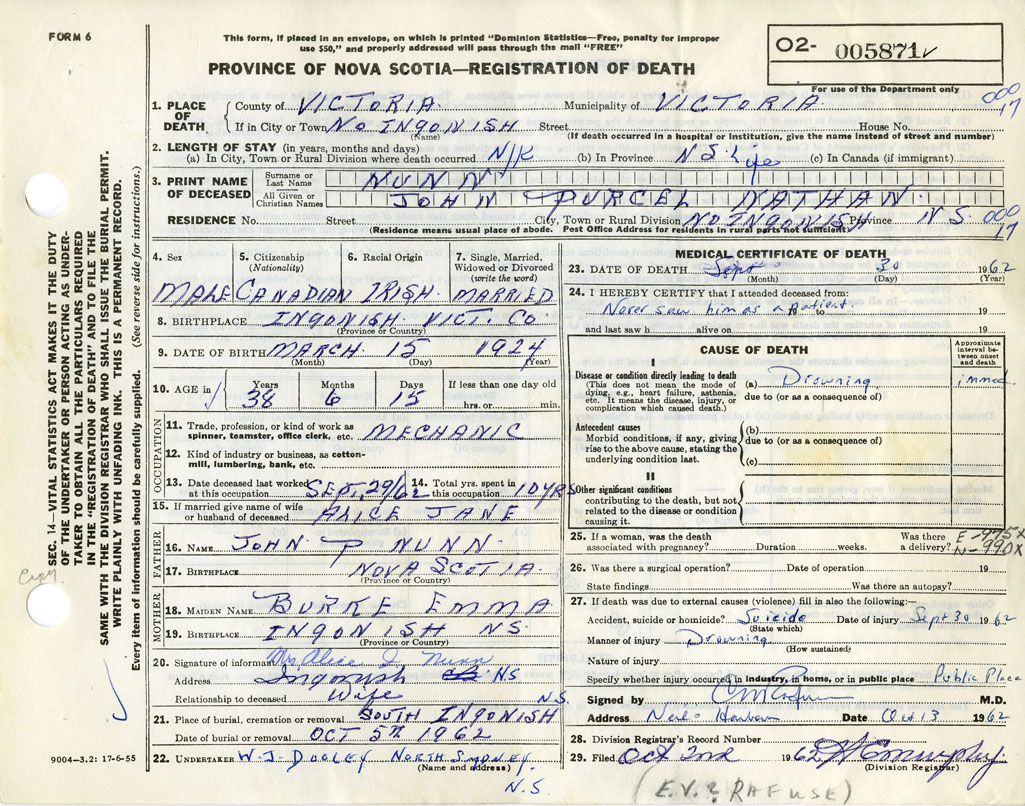 FORM 6
This form, if placed in an envelope, on which is printed "Dominion Statistics—Free, penalty for improper
use $50," and properly addressed will pass through the mail "FREE"
O2- 005871
PROVINCE OF NOVA SCOTIA—REGISTRATION OF DEATH
For use of the Department only
000
17
1. PLACE OF DEATH. County of VICTORIA. Municipality of VICTORIA.
If in City or Town No INGONISH Street House No.
(Name) (If death occurred in a hospital or institution, give the name instead of street and number)
2. LENGTH OF STAY (in years, months and days)
(a) In City, Town or Rural Division where death occurred N/K (b) In Province NS. Life (c) In Canada (if immigrant)
3. PRINT NAME OF DECEASED Surname or Last Name NUNN
All Given or Christian Names JOHN PURCEL NATHAN.
RESIDENCE No. Street City, Town or Rural Division NO INGONISH Province N S. 000
17
(Residence means usual place of abode. Post Office Address for residents in rural parts not sufficient)
4. Sex 5. Citizenship (Nationality) 6. Racial Origin 7. Single, Married, Widowed or Divorced (write the word)
MALE CANADIAN IRISH. MARRIED
8. BIRTHPLACE INGONISH VICT. CO.
(Province or Country)
9. DATE OF BIRTH MARCH 15 1924
(Month) (Day) (Year)
10. AGE in Years Months Days If less than one day old
38 6 15 hrs. or min.
OCCUPATION
11. Trade, profession, or kind of work as
spinner, teamster, office clerk, etc. MECHANIC
12. Kind of industry or business, as cotton-
mill, lumbering, bank, etc.
13. Date deceased last worked at this occupation SEPT, 29/62 14. Total yrs. spent in this occupation 10 YRS
15. If married give name of wife
or husband of deceased ALICE JANE
FATHER
16. NAME JOHN P NUNN.
17. BIRTHPLACE NOVA SCOTIA.
(Province or Country)
MOTHER
18. MAIDEN NAME BURKE EMMA
19. BIRTHPLACE INGONISH NS.
(Province or Country)
20. Signature of informant Mrs Alice J Nunn
Address Ingonish NS
Relationship to deceased Wife N.S.
21. Place of burial, cremation or removal SOUTH INGONISH
Date of burial or removal OCT 5TH 1962
22. UNDERTAKER W.J DOOLEY NORTH SYDNEY
(Name and address)
N.S.
MEDICAL CERTIFICATE OF DEATH
23. DATE OF DEATH Sept 30 1962
(Month) (Day) (Year)
24. I HEREBY CERTIFY that I attended deceased from:
Never saw him as a patient. 19 to 19
and last saw h alive on 19
CAUSE OF DEATH
Approximate interval between onset and death
I
Disease or condition directly leading to death
(This does not mean the mode of
dying, e.g., heart failure, asthenia,
etc. It means the disease, injury, or
complication which caused death.)
(a) Drowning immed
due to (or as a consequence of)
Antecedent causes
Morbid conditions, if any, giving
rise to the above cause, stating the
underlying condition last.
(b)
due to (or as a consequence of)
(c)
II
Other significant conditions
contributing to the death, but not
related to the disease or condition
causing it.
25. If a woman, was the death Was there
associated with pregnancy? Duration weeks. a delivery?
E-975X
N-990X
26. Was there a surgical operation? Date of operation 19
State findings Was there an autopsy?
27. If death was due to external causes (violence) fill in also the following:—
Accident, suicide or homicide? Suicide Date of injury Sept 30 1962
(State which)
Manner of injury Drowning
(How sustained)
Nature of injury
Specify whether injury occurred in industry, in home, or in public place Public Place
Signed by M.D.
Address Neil's Harbour Date Oct 13 1962
28. Division Registrar's Record Number
29. Filed Oct 2nd 1962 Murphy
(Division Registrar)
(E.V.? RAFUSE)
9004—3.2: 17-6-55
SEC. 14—VITAL STATISTICS ACT MAKES IT THE DUTY
OF THE UNDERTAKER OR PERSON ACTING AS UNDER-
TAKER TO OBTAIN ALL THE PARTICULARS REQUIRED
IN THE "REGISTRATION OF DEATH" AND TO FILE THE
SAME WITH THE DIVISION REGISTRAR WHO SHALL ISSUE THE BURIAL PERMIT.
WRITE PLAINLY WITH UNFADING INK. THIS IS A PERMANENT RECORD.
Every item of information should be carefully supplied. (See reverse side for instructions.)